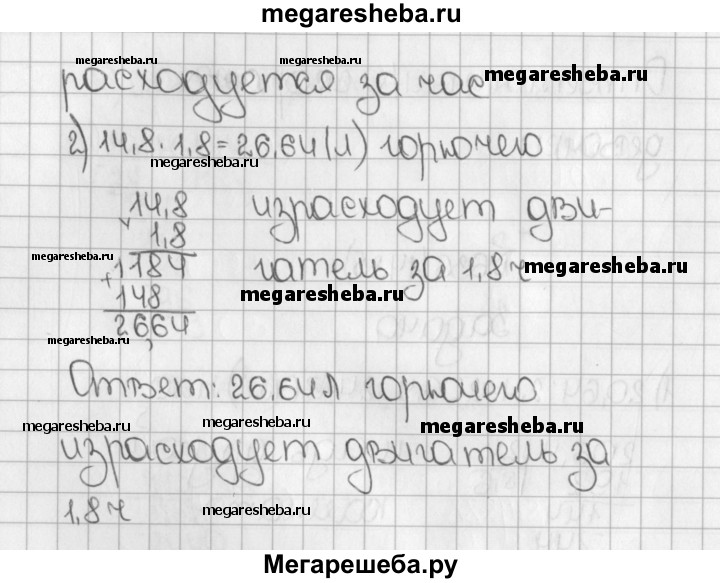 megaresheba.ru
megaresheba.ru megaresheba.ru
расходуется за час megaresheba.ru
2) 14,8 · 1,8 = 26,64 (л) горючего
megaresheba.ru megaresheba.ru
14,8 израсходует дви-
× 1,8
megaresheba.ru + 1184 гатель за 1,8 ч megaresheba.ru
148 megaresheba.ru
26,64
Ответ: 26,64 л горючего
megaresheba.ru megaresheba.ru megaresheba.ru
израсходует двигатель за
1,8 ч megaresheba.ru megaresheba.ru
Мегарешеба.ру